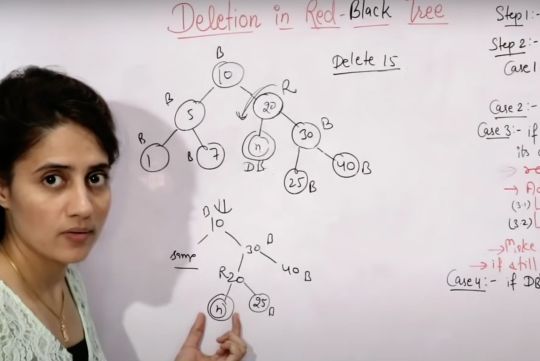 Deletion in Red-Black Tree
Delete 15
B
10
B
5
R
20
B
1
B
7
n
DB
B
30
25
B
40
B
B
10
same
B
30
R
20
40
B
n
25
B
Step 1:-
Step 2:-
Case 1
Case 2:-
Case 3:- if
its
→
→
(3.1)
(3.2)
→ Make
→ if still
Case 4:- if DB